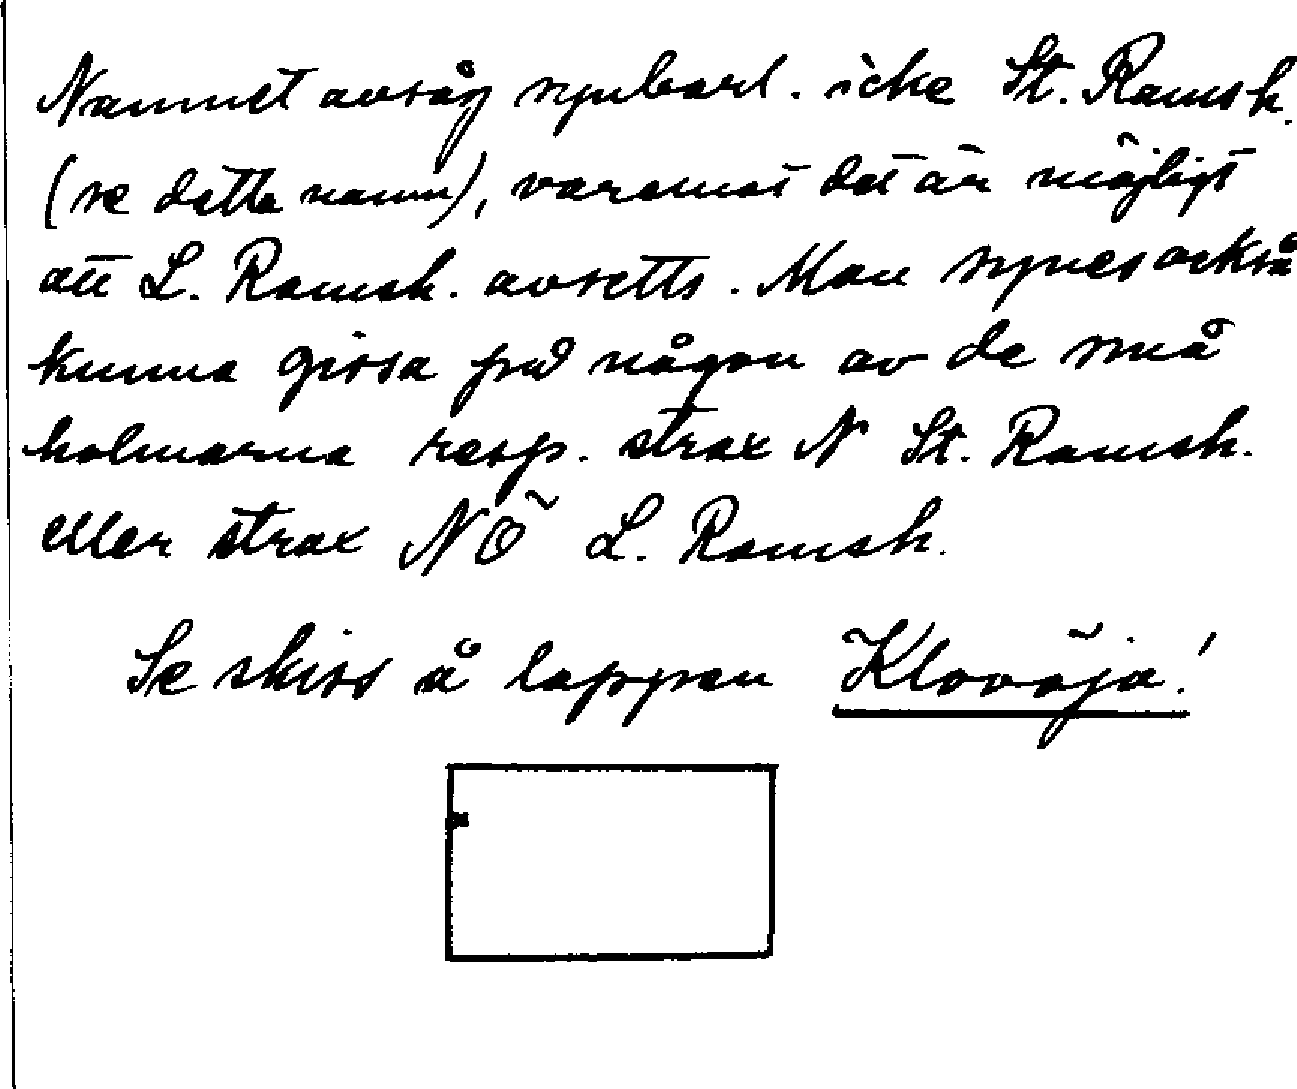 Namnet avsåg synbarl. icke St. Ramsh.
(se detta namn), varemot det är möjligt
att L. Ramsh. avsetts. Man synes också
kunna gissa på någon av de små
holmarna resp. strax N St. Ramsh.
eller strax NÖ L. Ramsh.
Se skiss å lappen Klovöja!